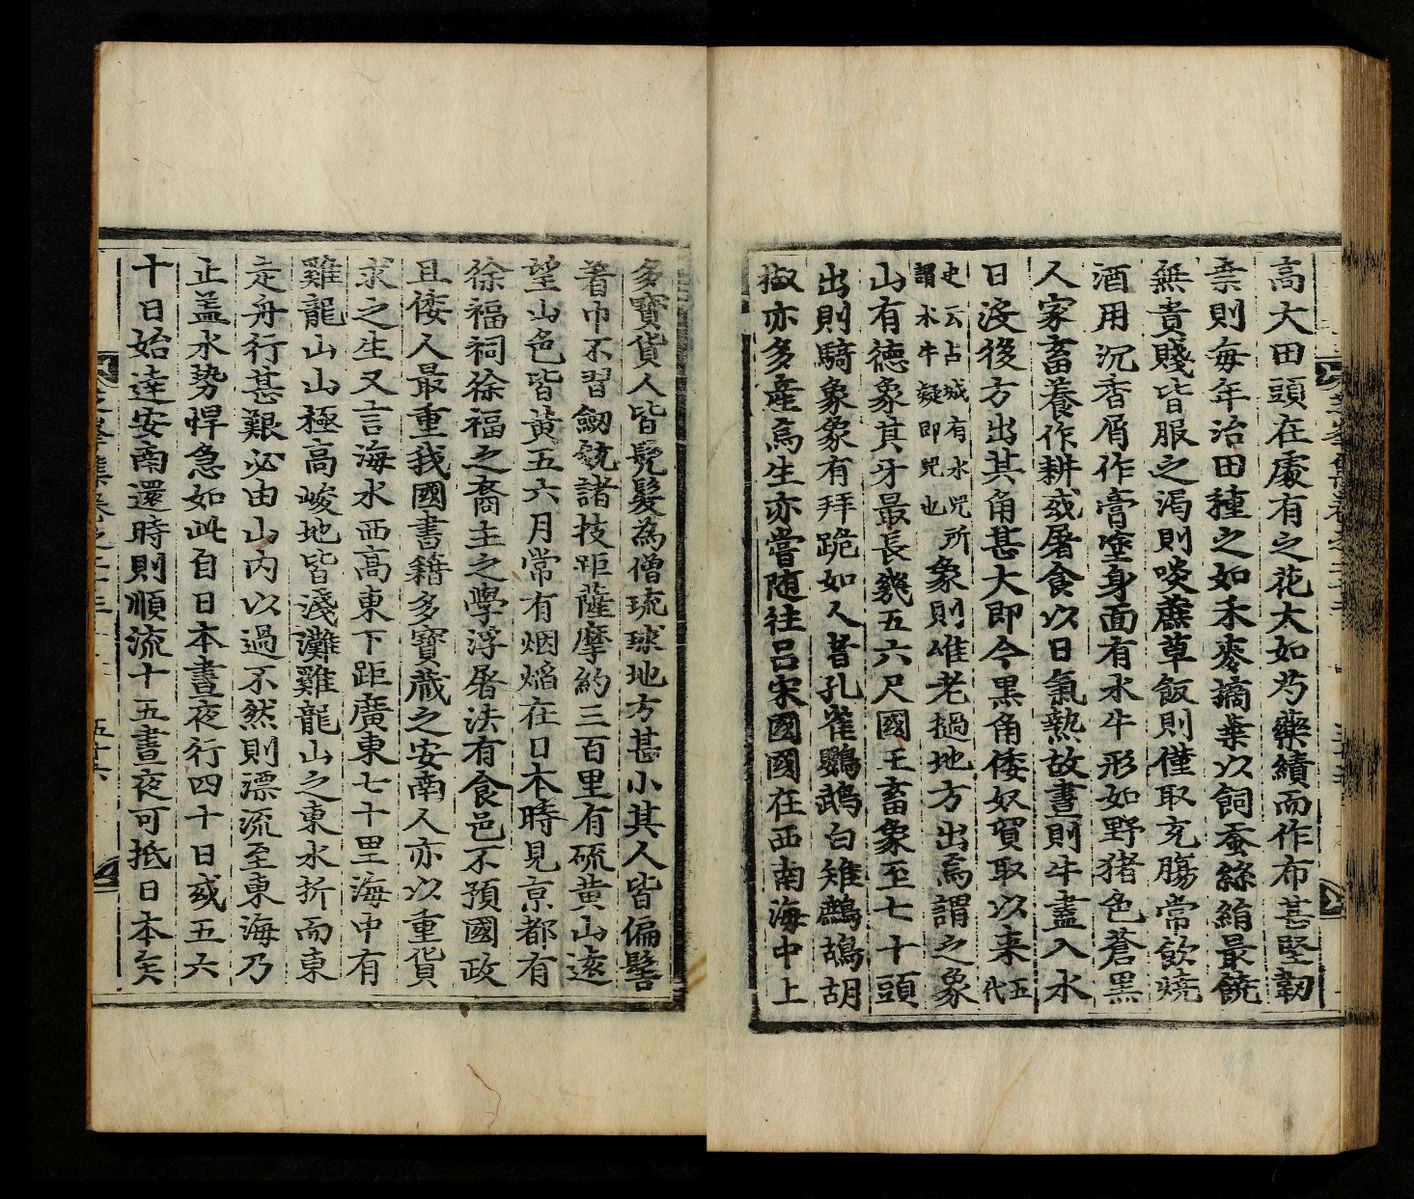 高大田頭在處有之花大如芍藥績而作布甚堅韌
桒則每年治田種之如禾麥摘葉以飼蚕絲絹最饒
無貴賤皆服之渴則啖蔗草飯則僅取充膓常飮燒
酒用沉香屑作膏塗身面有水牛形如野猪色蒼黑
人家畜養作耕或屠食以日氣熱故晝則牛盡入水
日沒後方出其角甚大即今黑角倭奴貿取以来五代
史云占城有水兕所謂水牛疑即兕也所象則唯老撾地方出焉謂之象
山有德象其牙最長幾五六尺國王畜象至七十頭
出則騎象象有拜跪如人者孔雀鸚鵡白雉鷓鴣胡
椒亦多產焉生亦嘗随往呂宋國國在西南海中上
多寶貨人皆髡髮為僧琉球地方甚小其人皆偏髻
着巾不習劒銃諸技距薩摩約三百里有硫黄山遠
望山色皆黄五六月常有烟焰在日本時見京都有
徐福祠徐福之裔主之學浮屠法有食邑不預國政
且倭人最重我國書籍多寶藏之安南人亦以重貨
求之生又言海水西高東下距廣東七十里海中有
雞龍山山極高峻地皆淺灘雞龍山之東水折而東
走舟行甚艱必由山內以過不然則漂流至東海乃
止盖水勢悍急如此自日本晝夜行四十日或五六
十日始達安南還時則順流十五晝夜可抵日本矣